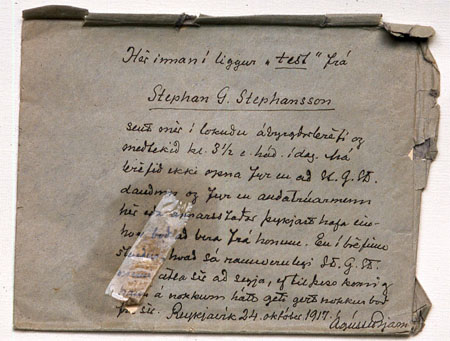 Hér innan í liggur „test" frá
Stephan G. Stephansson
sent mér í lokuðu ábyrgðarbréfi og
meðtekið kl. 3½ e. hád. í dag. Má
bréfið ekki opna fyr en að St. G. St.
dauðum og fyr en andatrúarmenn
hér eða annarsstaðar þykjast hafa
boð að vera frá honum. En í bréfinu
stendur hvað sá raunverulegi St. G. St.
ætla sér að segja, ef til þess kemi og
á nokkurn hátt geti gert nokkur boð
sér. Reykjavík 24. október 1917. Ágúst Bjarn